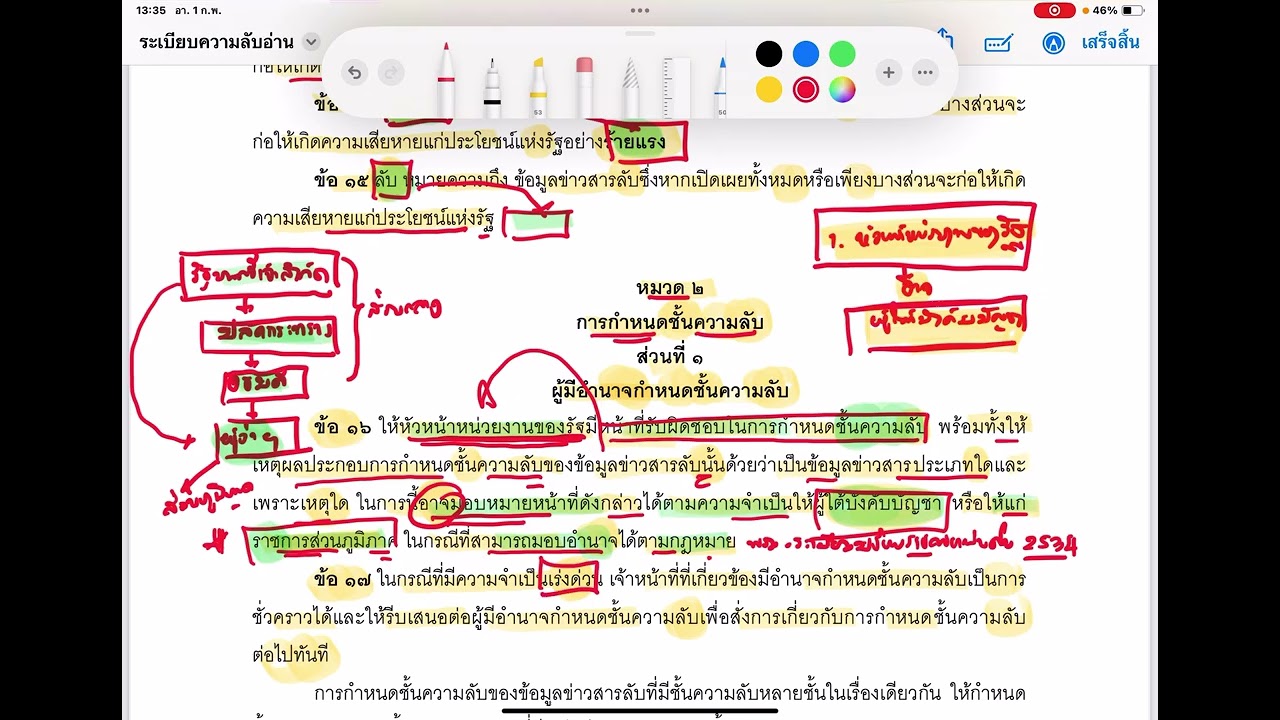 13:35 อา. 1 ก.พ.
46%
ระเบียบความลับอ่าน
เสร็จสิ้น
53
50
ก่อให้เกิด
ข้อ
บางส่วนจะ
ก่อให้เกิดความเสียหายแก่ประโยชน์แห่งรัฐอย่างร้ายแรง
ข้อ ๑๕ ลับ หมายความถึง ข้อมูลข่าวสารลับซึ่งหากเปิดเผยทั้งหมดหรือเพียงบางส่วนจะก่อให้เกิด
ความเสียหายแก่ประโยชน์แห่งรัฐ
1. หัวหน้าหน่วยงานของรัฐ
อาจ
ผู้ใต้บังคับบัญชา
ปลัดกระทรวง
อธิบดี
ผู้ว่าฯ
หมวด ๒
การกำหนดชั้นความลับ
ส่วนที่ ๑
ผู้มีอำนาจกำหนดชั้นความลับ
ข้อ ๑๖ ให้หัวหน้าหน่วยงานของรัฐมีหน้าที่รับผิดชอบในการกำหนดชั้นความลับ พร้อมทั้งให้
เหตุผลประกอบการกำหนดชั้นความลับของข้อมูลข่าวสารลับนั้นด้วยว่าเป็นข้อมูลข่าวสารประเภทใดและ
เพราะเหตุใด ในการนี้อาจมอบหมายหน้าที่ดังกล่าวได้ตามความจำเป็นให้ผู้ใต้บังคับบัญชา หรือให้แก่
ราชการส่วนภูมิภาค ในกรณีที่สามารถมอบอำนาจได้ตามกฎหมาย
2534
ข้อ ๑๗ ในกรณีที่มีความจำเป็นเร่งด่วน เจ้าหน้าที่ที่เกี่ยวข้องมีอำนาจกำหนดชั้นความลับเป็นการ
ชั่วคราวได้และให้รีบเสนอต่อผู้มีอำนาจกำหนดชั้นความลับเพื่อสั่งการเกี่ยวกับการกำหนดชั้นความลับ
ต่อไปทันที
การกำหนดชั้นความลับของข้อมูลข่าวสารลับที่มีชั้นความลับหลายชั้นในเรื่องเดียวกัน ให้กำหนด